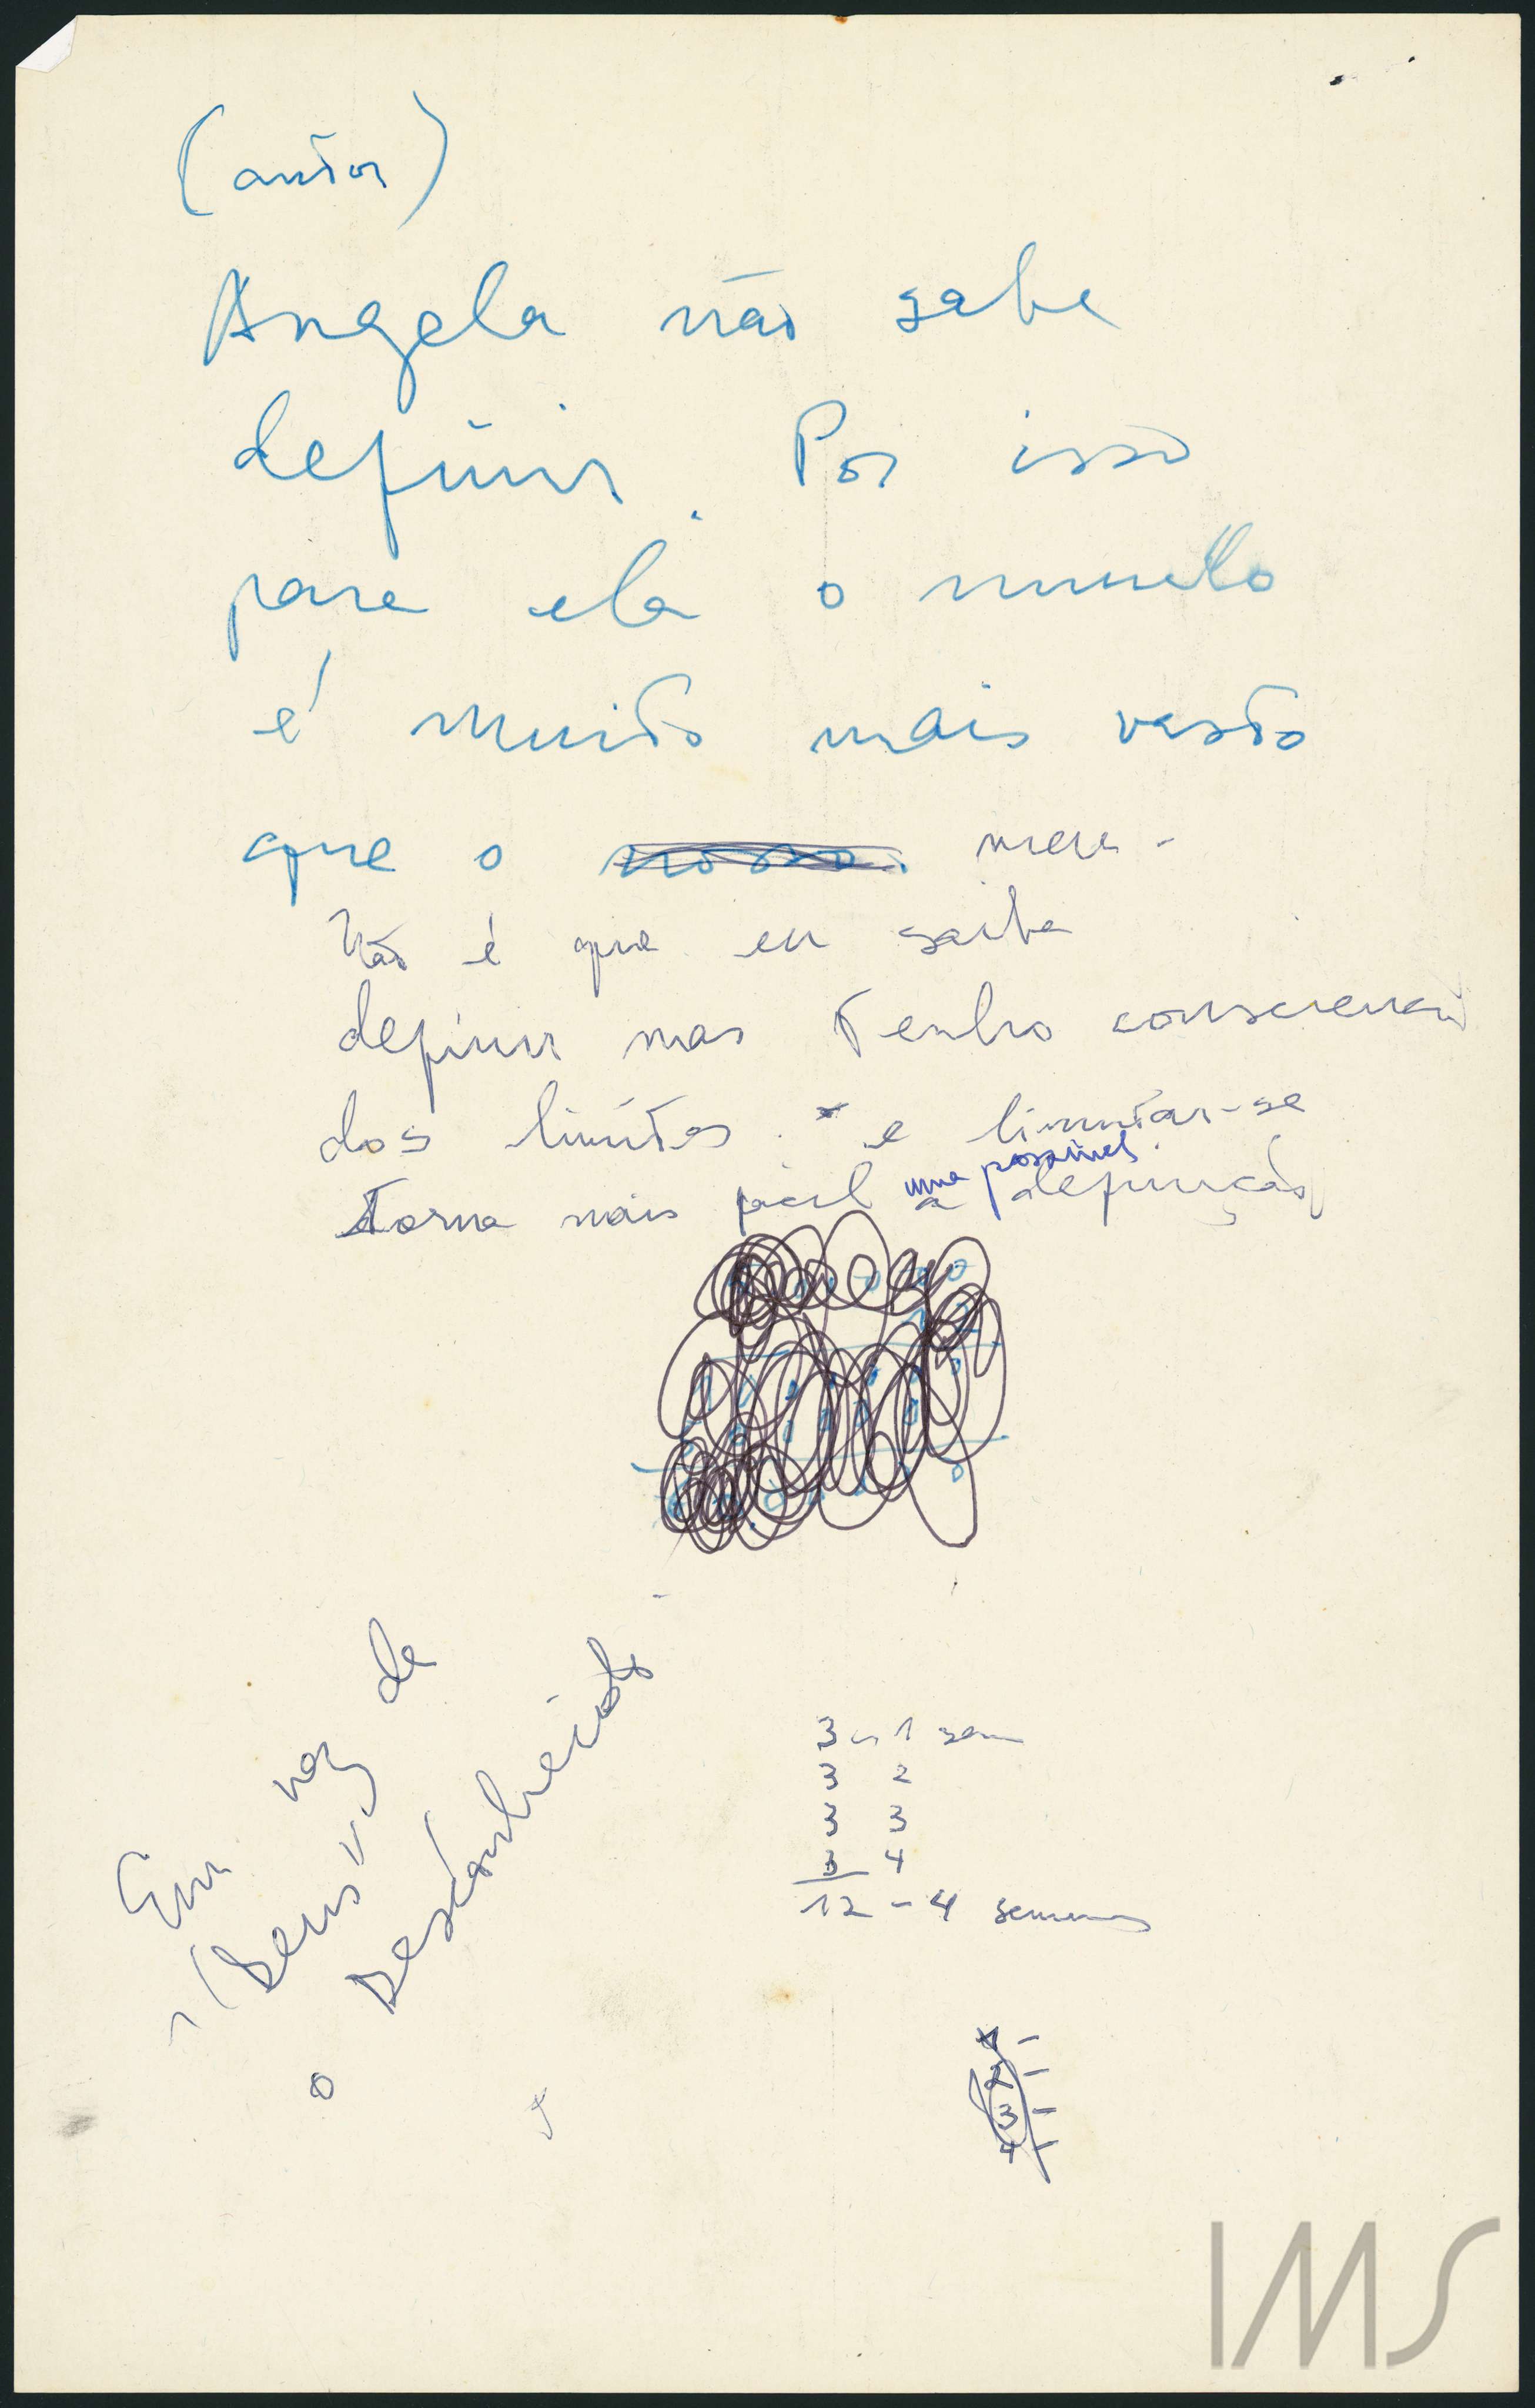 (autor)
Angela não sabe
definir. Por isso
para ela o mundo
é muito mais vasto
que o nosso. meu -
Não é que eu saiba
definir mas tenho consciência
dos limites e limitar-se
uma possível
torna mais fácil a definição
Em vez de
(Deus)
o Desconhecido
3 1 sem
3 2
3 3
3 4
12 - 4 semanas
1 -
2 -
3 -
4 -
IMS